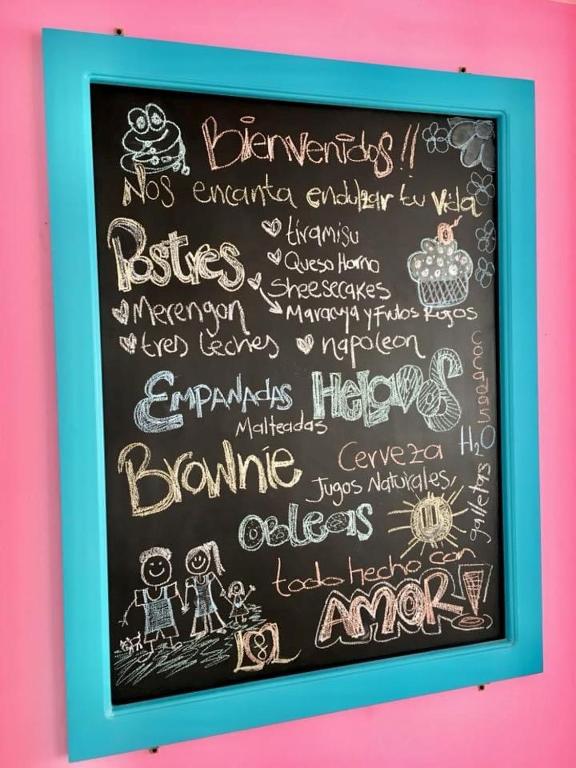 Bienvenidos!!
Nos encanta endulzar tu vida
Postres
tiramisu
Queso Horno
Sheesecakes
Maracuya y Frutos Rojos
Merengon
tres leches
napoleon
Empanadas
Helados
Malteadas
Brownie
Cerveza
Jugos Naturales,
H2O
galletas
Obleas
todo hecho con
AMOR!